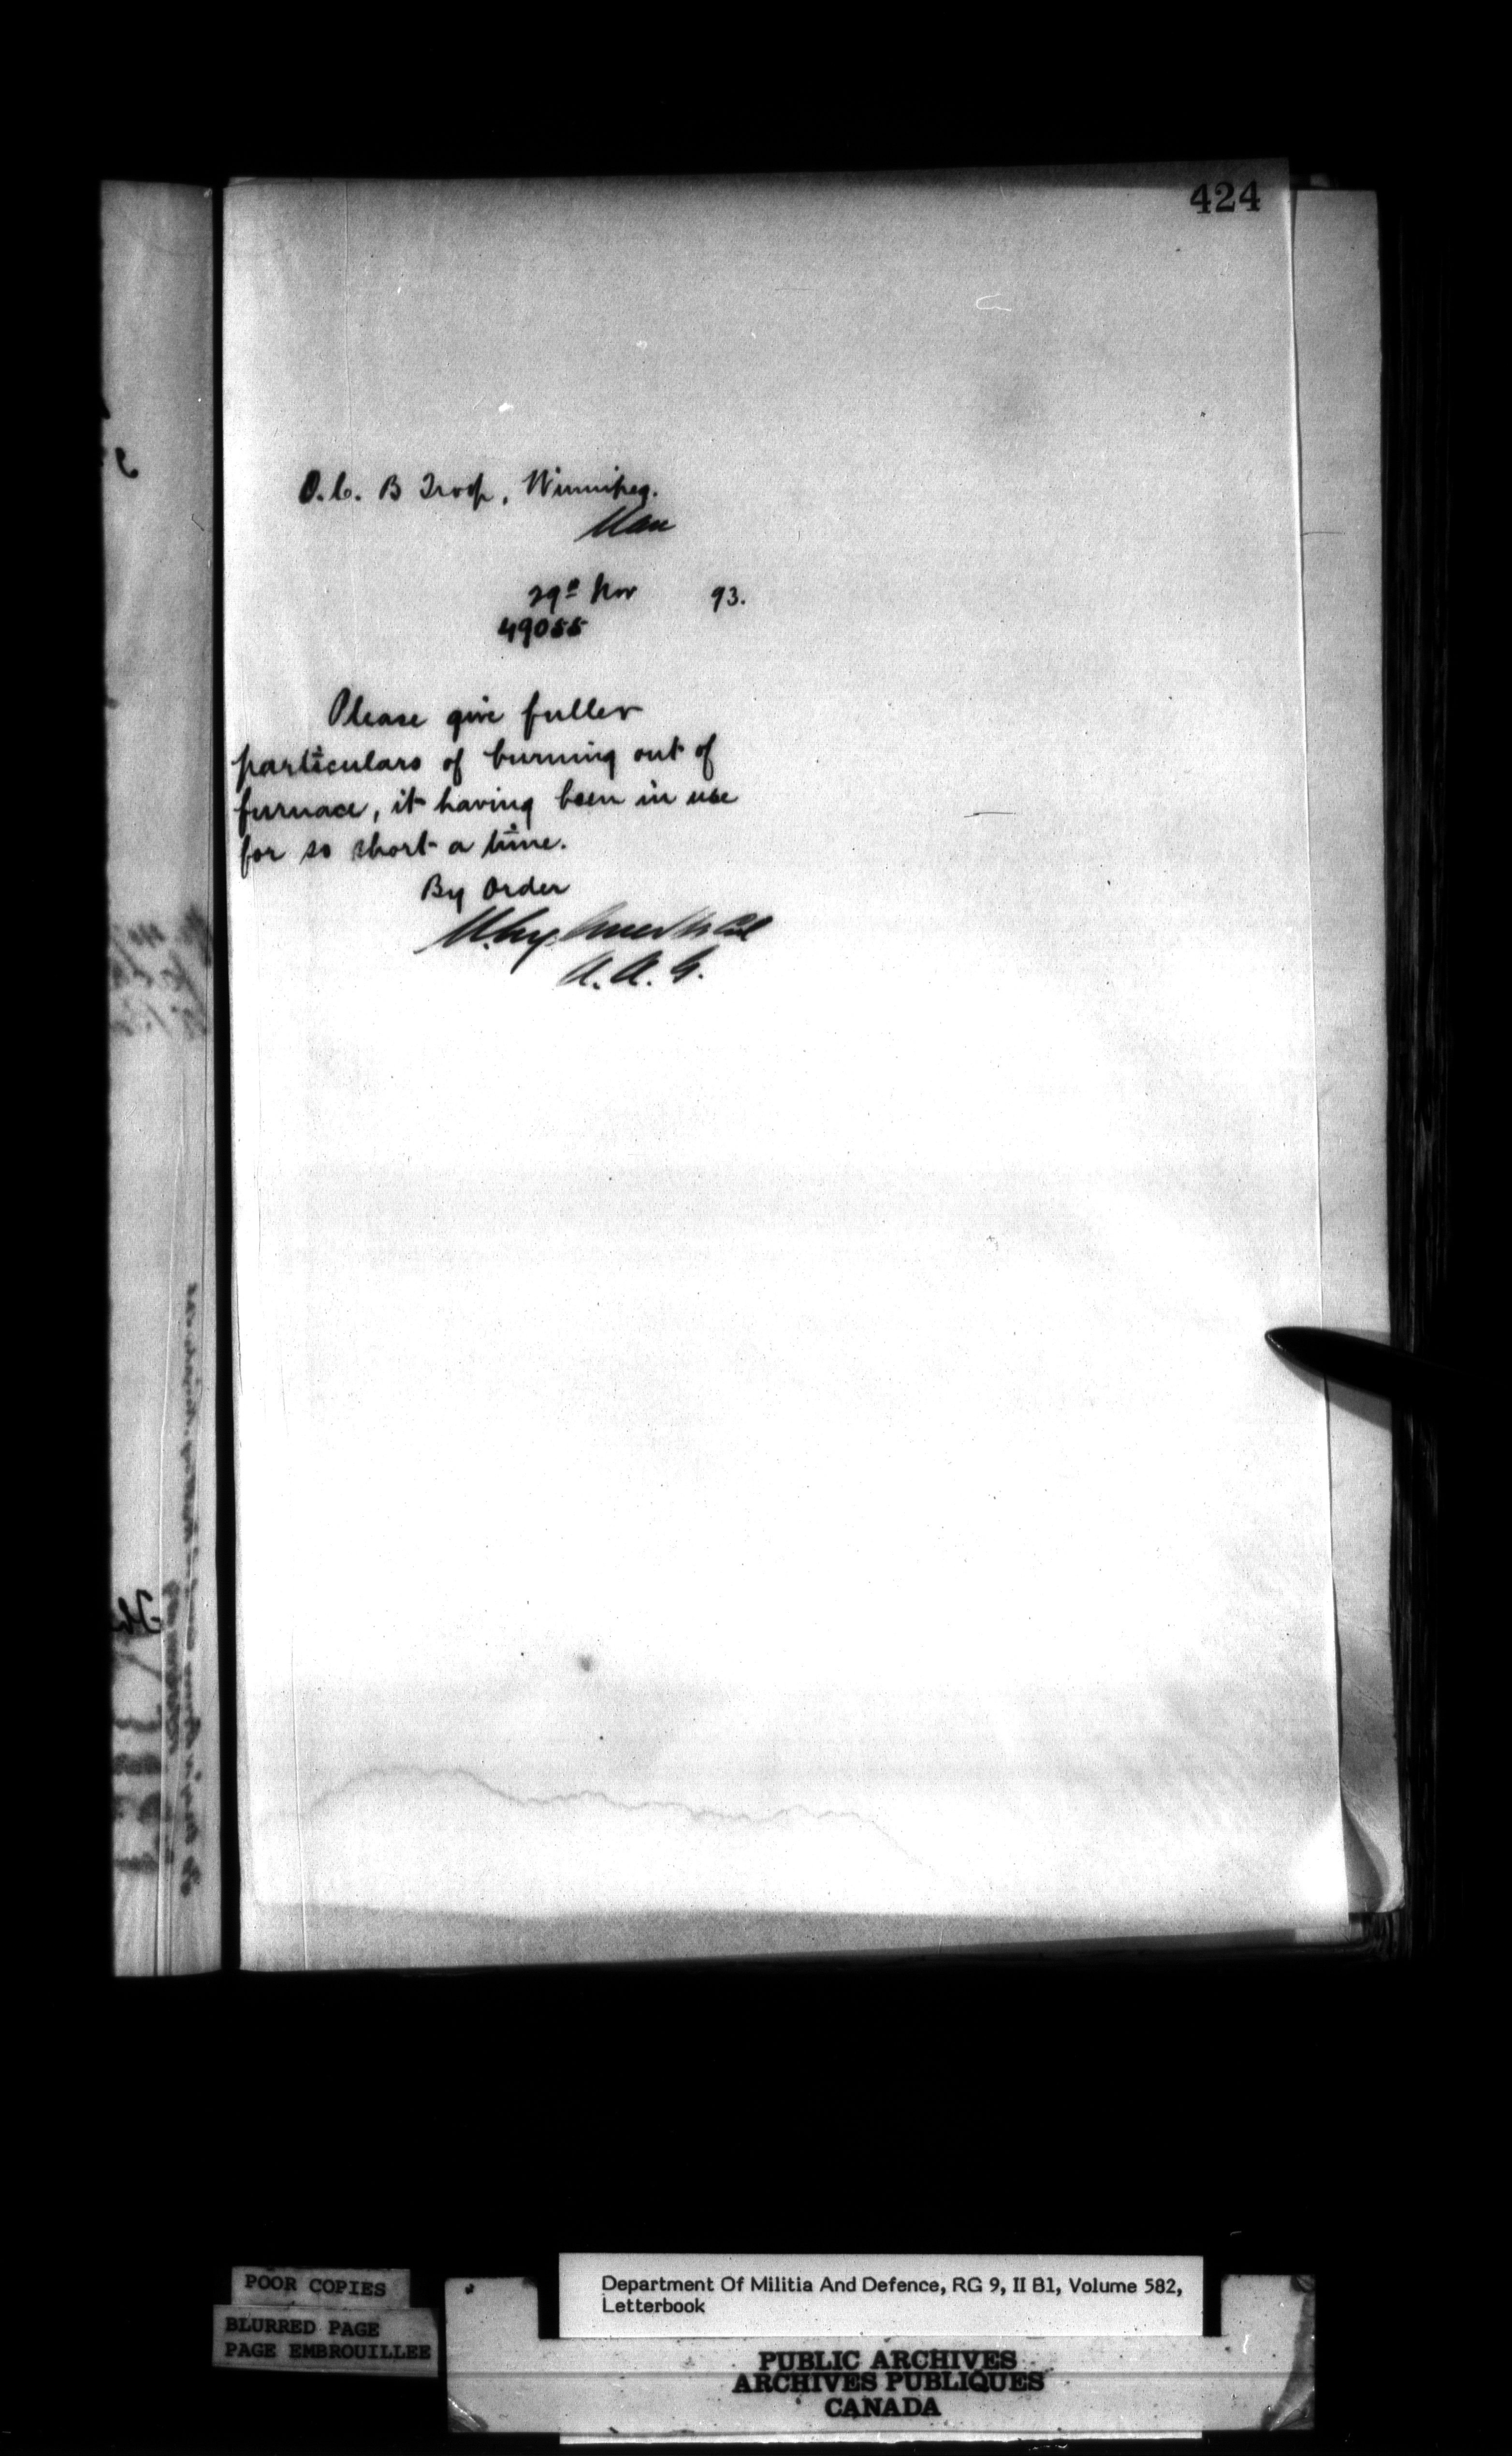 424
O.C. B Troop, Winnipeg.
Man
29th Nov 93.
49055
Please give fuller
particulars of burning out of
furnace, it having been in use
for so short a time.
By Order
A. A. G.
POOR COPIES
BLURRED PAGE
PAGE EMBROUILLEE
Department Of Militia And Defence, RG 9, II B1, Volume 582,
Letterbook
PUBLIC ARCHIVES
ARCHIVES PUBLIQUES
CANADA